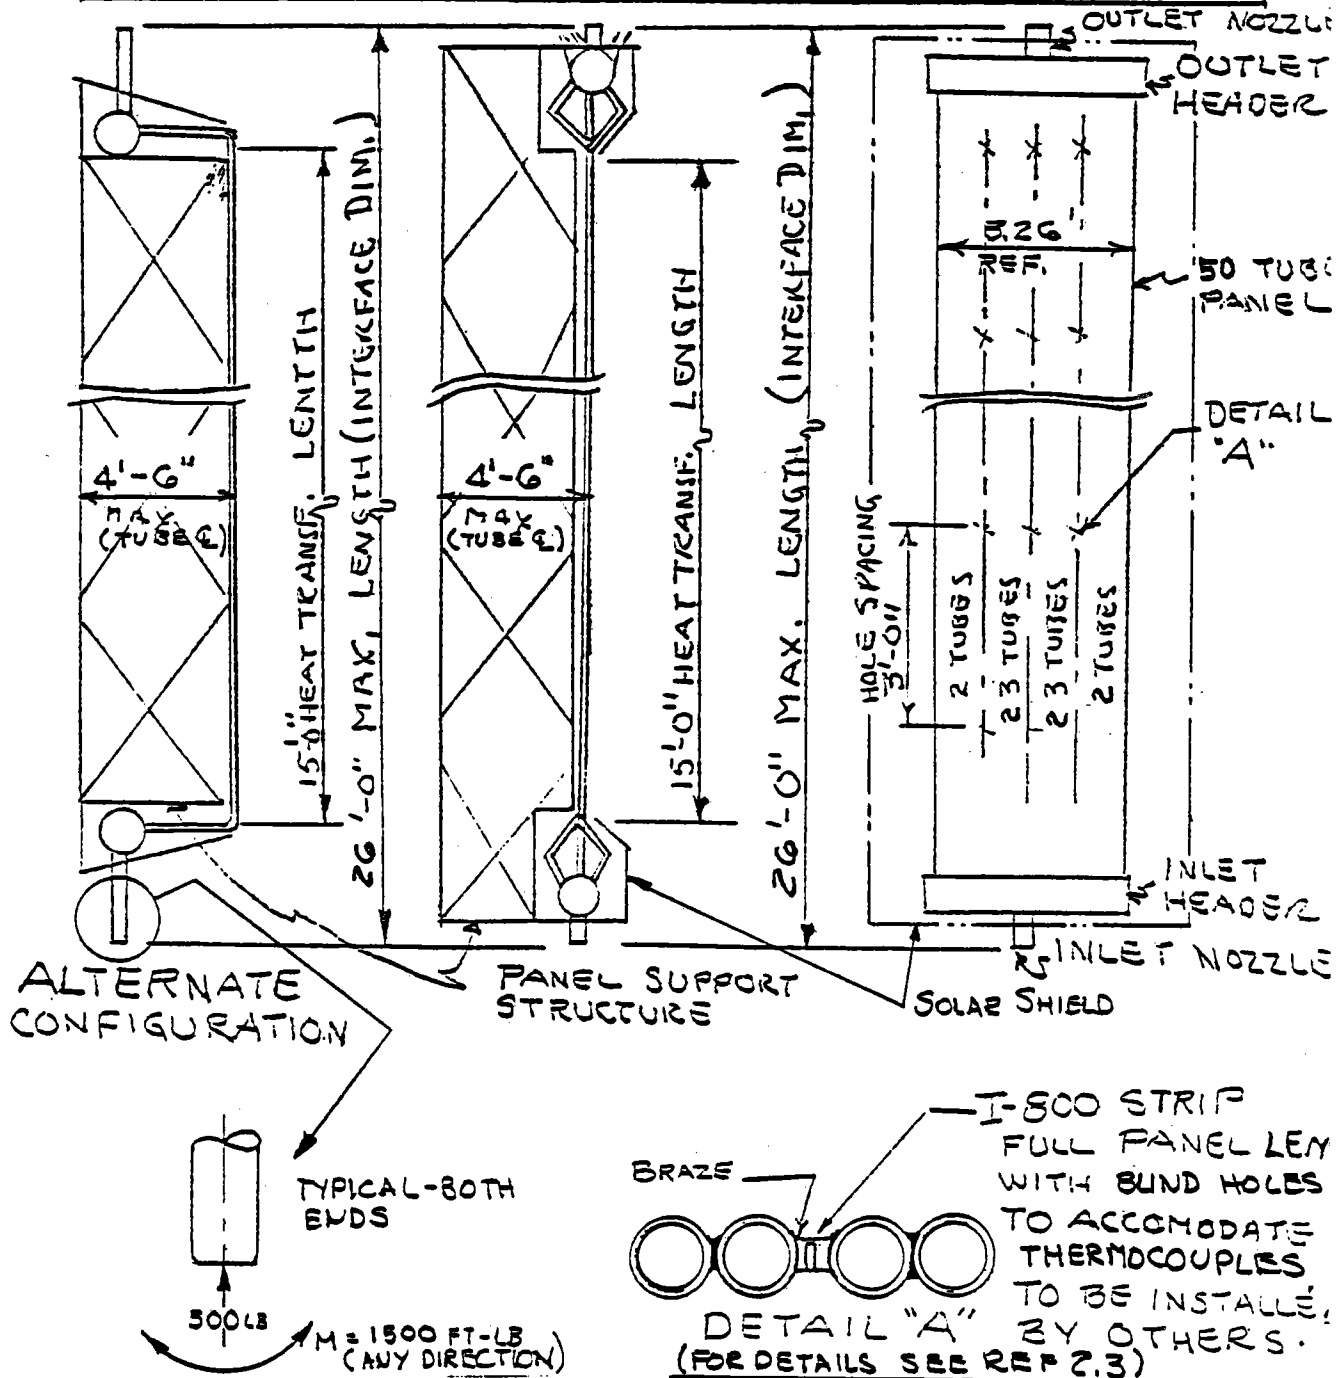 OUTLET NOZZLE
OUTLET
HEADER
8.26'
REF.
50 TUBE
PANEL
DETAIL
"A"
4'-6"
MAX
(TUBE ℄)
15'-0" HEAT TRANSF. LENTTH
26'-0" MAX, LENGTH (INTERFACE DIM.)
4'-6"
MAX
(TUBE ℄)
15'-0" HEAT TRANSF. LENGTH
26'-0" MAX. LENGTH (INTERFACE DIM.)
HOLE SPACING
3'-0"
2 TUBES
23 TUBES
23 TUBES
2 TUBES
INLET
HEADER
INLET NOZZLE
ALTERNATE
CONFIGURATION
PANEL SUPPORT
STRUCTURE
SOLAR SHIELD
TYPICAL-BOTH
ENDS
500 LB
M = 1500 FT-LB
(ANY DIRECTION)
BRAZE
I-800 STRIP
FULL PANEL LEN
WITH BLIND HOLES
TO ACCOMODATE
THERMOCOUPLES
TO BE INSTALLE
BY OTHERS.
DETAIL "A"
(FOR DETAILS SEE REF 2.3)